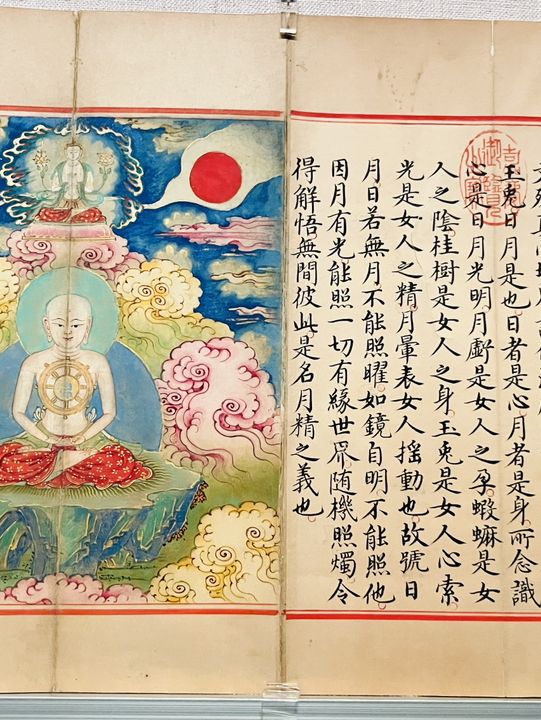 玉兔日月是也日者是心月者是身所念識
心是日月光明月虧是女人之孕蝦蟆是女
人之陰桂樹是女人之身玉兔是女人心索
光是女人之精月暈表女人搖動也故號日
月日若無月不能照曜如鏡自明不能照他
因月有光能照一切有緣世界随機照燭令
得解悟無間彼此是名月精之義也